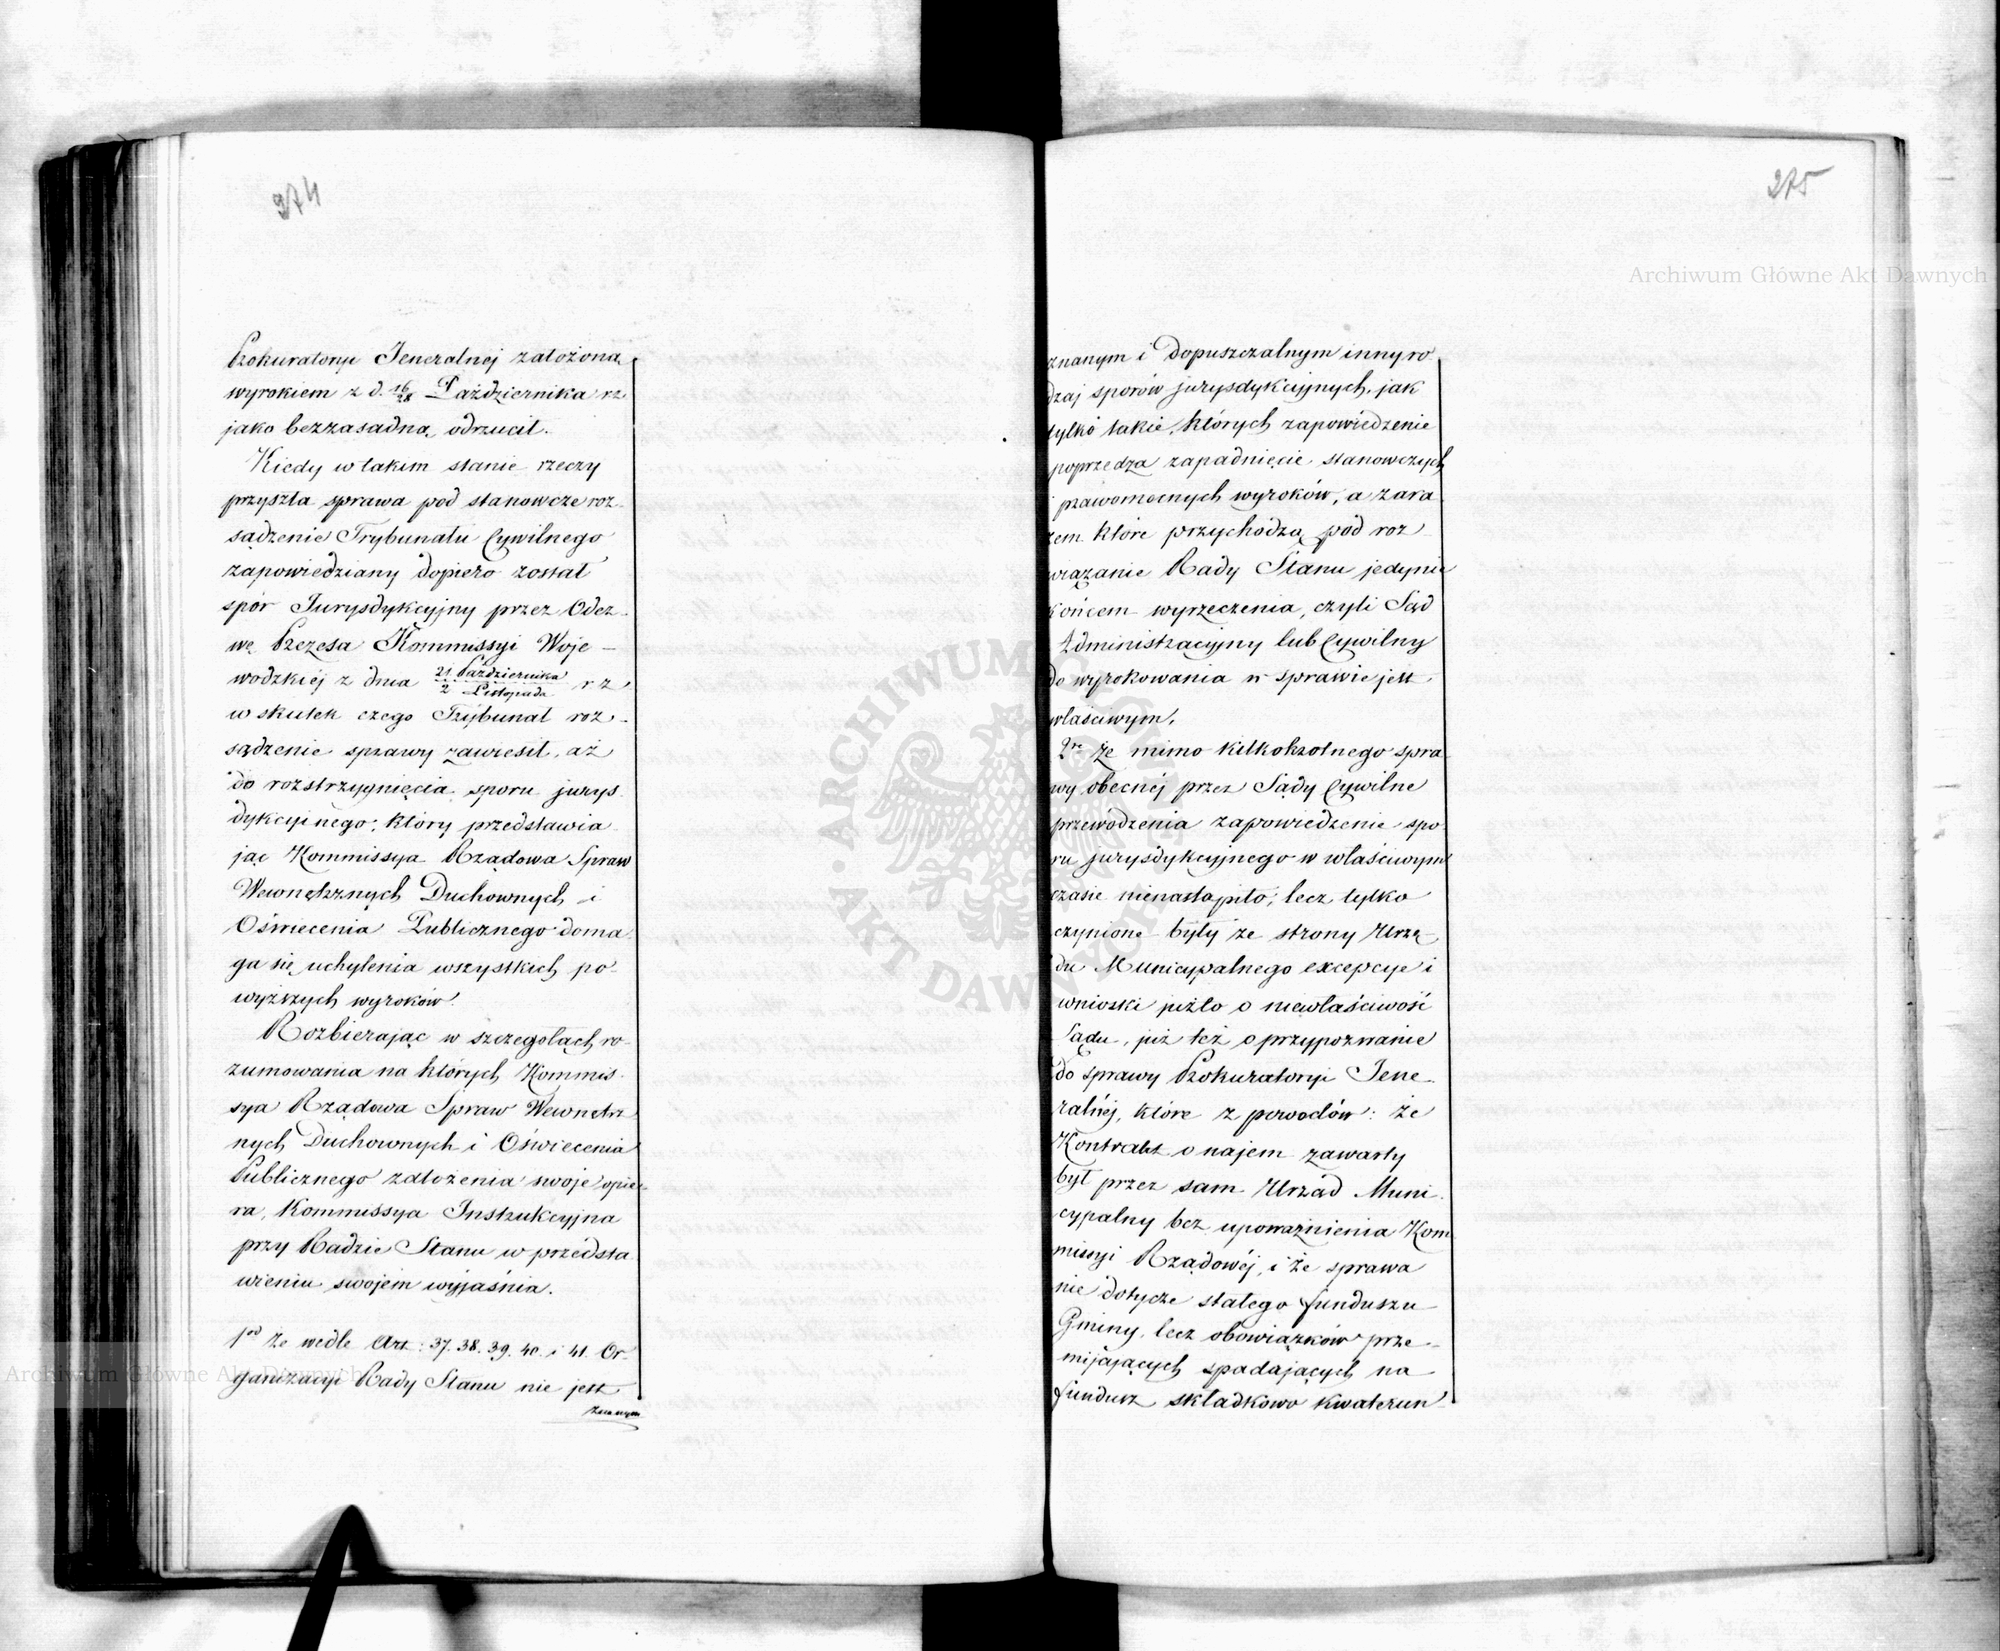 274
Prokuratoryi Jeneralnej założoną
wyrokiem z d. 16/28 Października rz
jako bezzasadną odrzucił.
Kiedy w takim stanie rzeczy
przyszła sprawa pod stanowcze roz-
sądzenie Trybunału Cywilnego
zapowiedziany dopiero został
spór Jurysdykcyjny przez Odez-
wę Prezesa Kommissyi Woje-
wodzkiej z dnia 21 Października/2 Listopada r z
w skutek czego Trybunał roz-
sądzenie sprawy zawiesił, aż
do rozstrzygnięcia sporu jurys-
dykcyjnego; który przedstawia
jąc Kommissya Rządowa Spraw
Wewnętrznych Duchownych i
Oświecenia Publicznego doma
ga się uchylenia wszystkich po-
wyższych wyroków.
Rozbierając w szczegółach ro-
zumowania na których Kommis-
sya Rządowa Spraw Wewnętrz
nych Duchownych i Oświecenia
Publicznego założenia swoje opie-
ra, Kommissya Instrukcyjna
przy Radzie Stanu w przedsta
wieniu swojem wyjaśnia.
1od że wedle Art: 37. 38. 39. 40. i 41. Or-
ganizacyi Rady Stanu nie jest
znanym
275
znanym i dopuszczalnym inny ro-
dzaj sporów jurysdykcyjnych, jak
tylko takie, których zapowiedzenie
poprzedza zapadnięcie stanowczych
i prawomocnych wyroków, a zara
zem które przychodzą pod roz-
wiązanie Rady Stanu jedynie
końcem wyrzeczenia, czyli Sąd
Administracyjny lub Cywilny
do wyrokowania w sprawie jest
właściwym.
2re że mimo kilkokrotnego spra
wy obecnéj przez Sądy Cywilne
przewodzenia zapowiedzenie spo-
ru jurysdykcyjnego w właściwym
czasie nienastąpiło; lecz tylko
czynione były ze strony Urzę-
du Municypalnego excepcye i
wnioski jużto o niewłaściwość
Sądu, już też o przypozwanie
do sprawy Prokuratoryi Jene-
ralnéj, które z powodów: że
Kontrakt o najem zawarty
był przez sam Urząd Muni-
cypalny bez upoważnienia Kom
missyi Rządowéj, i że sprawa
nie dotycze stałego funduszu
Gminy, lecz obowiązków prze-
mijających spadających na
fundusz składkowo kwaterun
Archiwum Główne Akt Dawnych
Archiwum Główne Akt Dawnych
ARCHIWUM GŁÓWNE AKT DAWNYCH